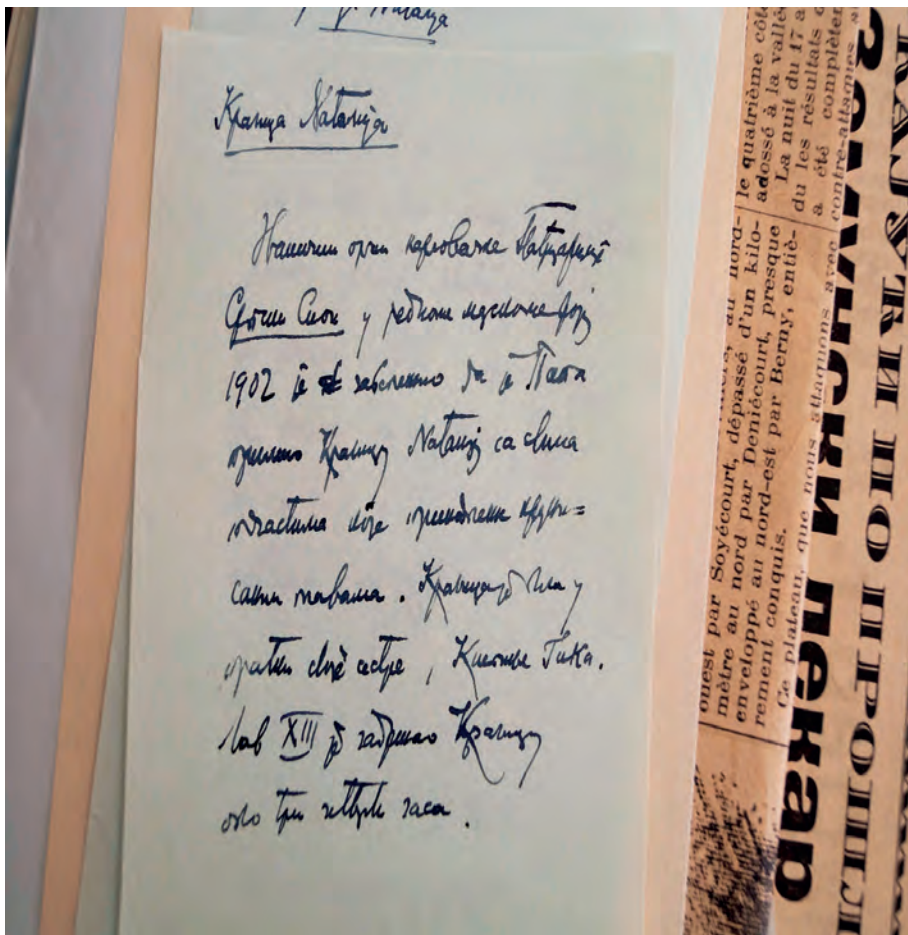 Краљица Наталија
орган карловачке Патријаршије
Српски Сион у једноме
1902 је забележено да је Папа
примио Краљицу Наталију са свима
почастима које круни=
саним главама. Краљица је била у
пратњи своје сестре, Кнегиње Гика.
Лав XIII је задржао Краљицу
око три четврти часа.
au nord-
ouest par Soyécourt, dépassé d'un kilo-
mètre au nord par Deniécourt, presque
enveloppé au nord-est par Berny, entiè-
rement conquis.
Ce plateau, que nous attaquons avec
le quatrième côté
adossé à la vallé
La nuit du 17
du les résultats
a été complètem
contre-attaques
земунски лекар
ПО ПРОШЛ